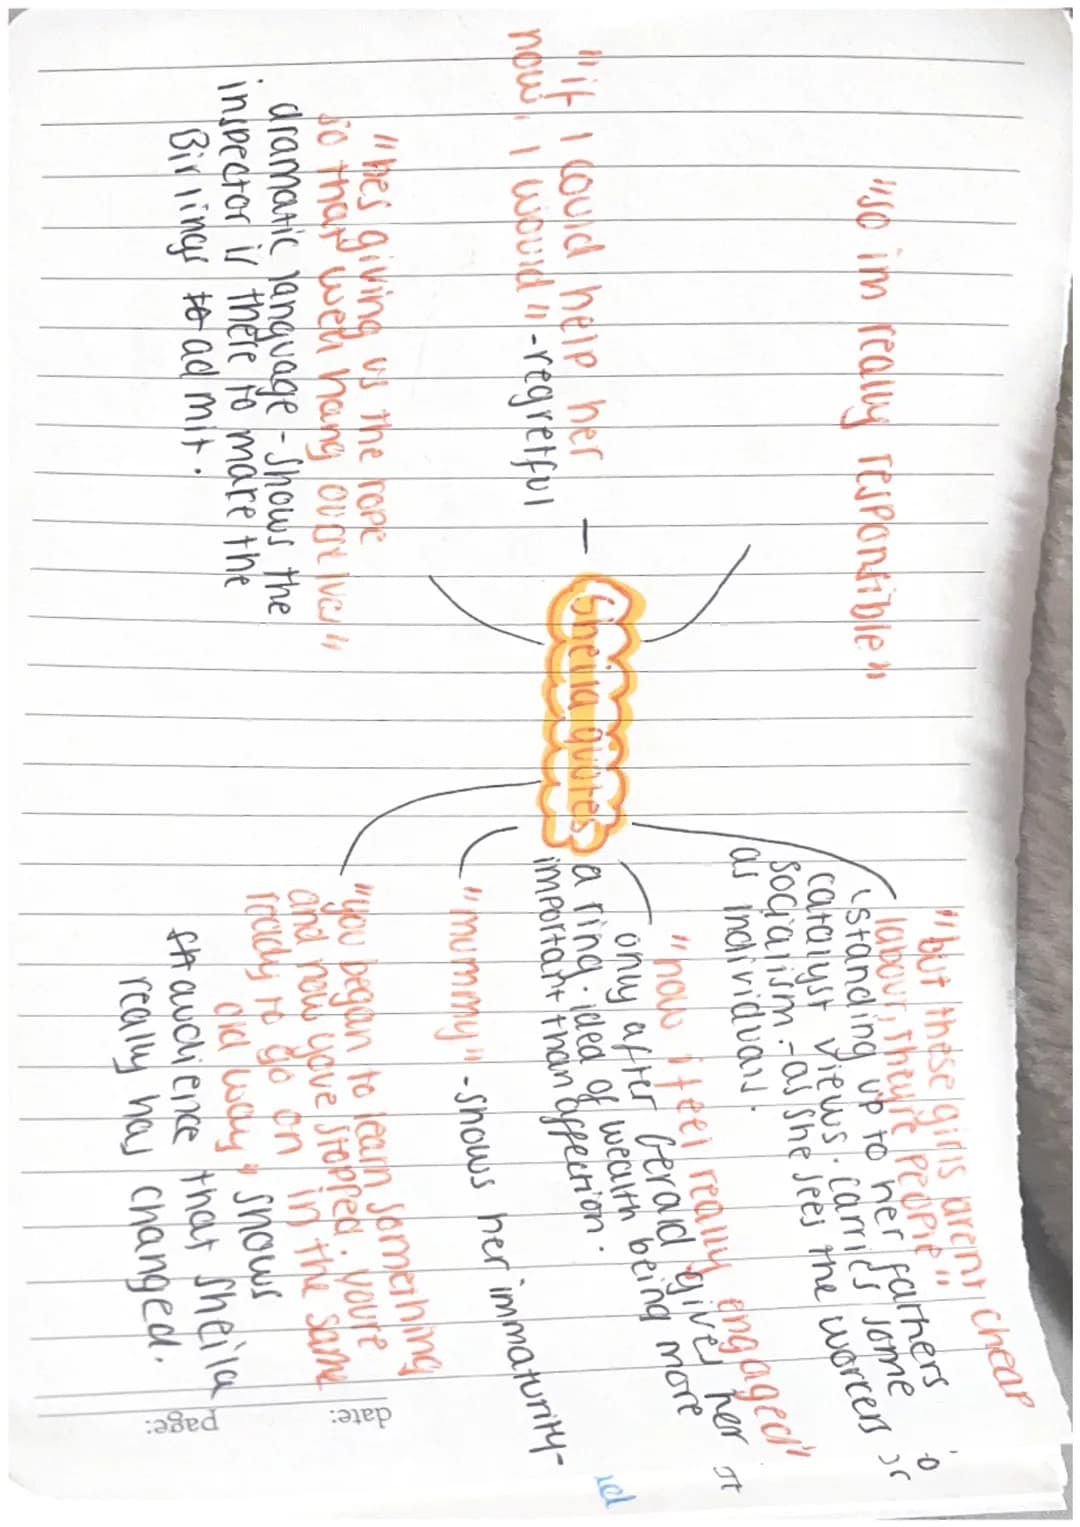 "so im really responsible"
"if I could help her
now, I would" -regretful
"hes giving us the rope
so that well hang ourselves"
dramatic language - shows the
inspector is there to make the
Birlings to admit.
Sheila quotes
"but these girls arent cheap
labour, theyre people"
standing up to her farthers
catalyst views. carries some
socialism. - as she sees the workers
as individuals.
"now i feel really engaged"
only after Gerald gives her
a ring. idea of wealth being more
important than affection.
"mummy" - shows her immaturity-
"you began to learn something
and now youve stopped. youre
ready to go on in the same
old way" shows
audience that sheila
really has changed.
date:
page: